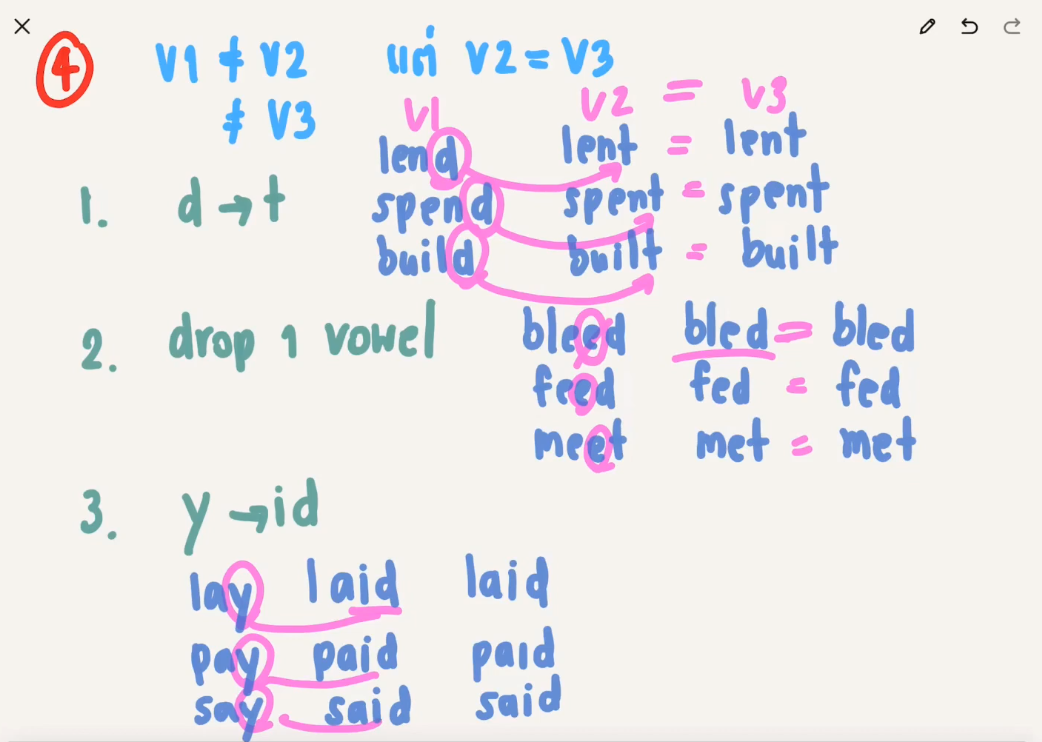 4 V1 ≠ V2 แต่ V2 = V3
≠ V3
V1 V2 = V3
lend lent = lent
1. d → t spend spent = spent
build built = built
2. drop 1 vowel bleed bled = bled
feed fed = fed
meet met = met
3. y → id
lay laid laid
pay paid paid
say said said